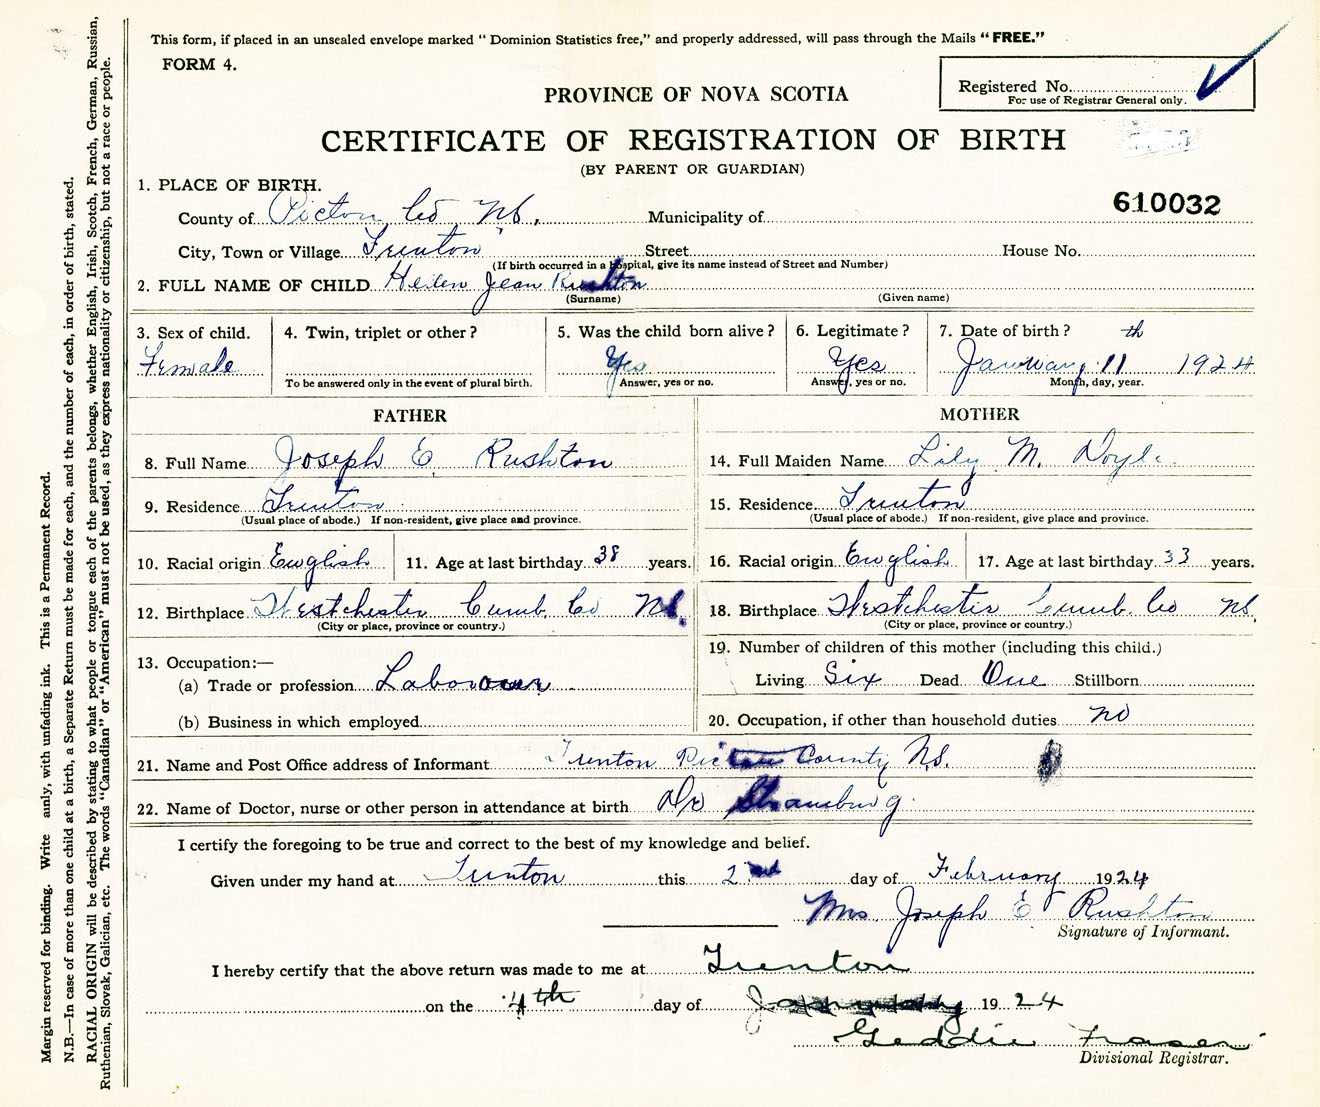 This form, if placed in an unsealed envelope marked “ Dominion Statistics free,” and properly addressed, will pass through the Mails “ FREE.”
FORM 4.
Registered No.
For use of Registrar General only.
PROVINCE OF NOVA SCOTIA
CERTIFICATE OF REGISTRATION OF BIRTH
(BY PARENT OR GUARDIAN)
610032
1. PLACE OF BIRTH.
County of Pictou Co NS. Municipality of
City, Town or Village Trenton Street House No.
(If birth occurred in a hospital, give its name instead of Street and Number)
2. FULL NAME OF CHILD Helen Jean Rushton
(Surname) (Given name)
3. Sex of child. Female
4. Twin, triplet or other?
To be answered only in the event of plural birth.
5. Was the child born alive? Yes
Answer, yes or no.
6. Legitimate? Yes
Answer, yes or no.
7. Date of birth? January 11th 1924
Month, day, year.
FATHER
8. Full Name Joseph E. Rushton
9. Residence Trenton
(Usual place of abode.) If non-resident, give place and province.
10. Racial origin English 11. Age at last birthday 38 years.
12. Birthplace Westchester Cumb. Co NS.
(City or place, province or country.)
13. Occupation:—
(a) Trade or profession Labourer
(b) Business in which employed
MOTHER
14. Full Maiden Name Lily M. Doyle
15. Residence Trenton
(Usual place of abode.) If non-resident, give place and province.
16. Racial origin English 17. Age at last birthday 33 years.
18. Birthplace Westchester Cumb. Co NS.
(City or place, province or country.)
19. Number of children of this mother (including this child.)
Living Six Dead One Stillborn
20. Occupation, if other than household duties no
21. Name and Post Office address of Informant Trenton Pictou County N.S.
22. Name of Doctor, nurse or other person in attendance at birth Dr
I certify the foregoing to be true and correct to the best of my knowledge and belief.
Given under my hand at Trenton this 2nd day of February 1924
Mrs. Joseph E Rushton
Signature of Informant.
I hereby certify that the above return was made to me at Trenton
on the 4th day of 1924
Geddie Fraser
Divisional Registrar.
Margin reserved for binding. Write anly, with unfading ink. This is a Permanent Record.
N.B.—In case of more than one child at a birth, a Separate Return must be made for each, and the number of each, in order of birth, stated.
RACIAL ORIGIN will be described by stating to what people or tongue each of the parents belongs, whether English, Irish, Scotch, French, German, Russian,
Ruthenian, Slovak, Galician, etc. The words “Canadian” or “American” must not be used, as they express nationality or citizenship, but not a race or people.